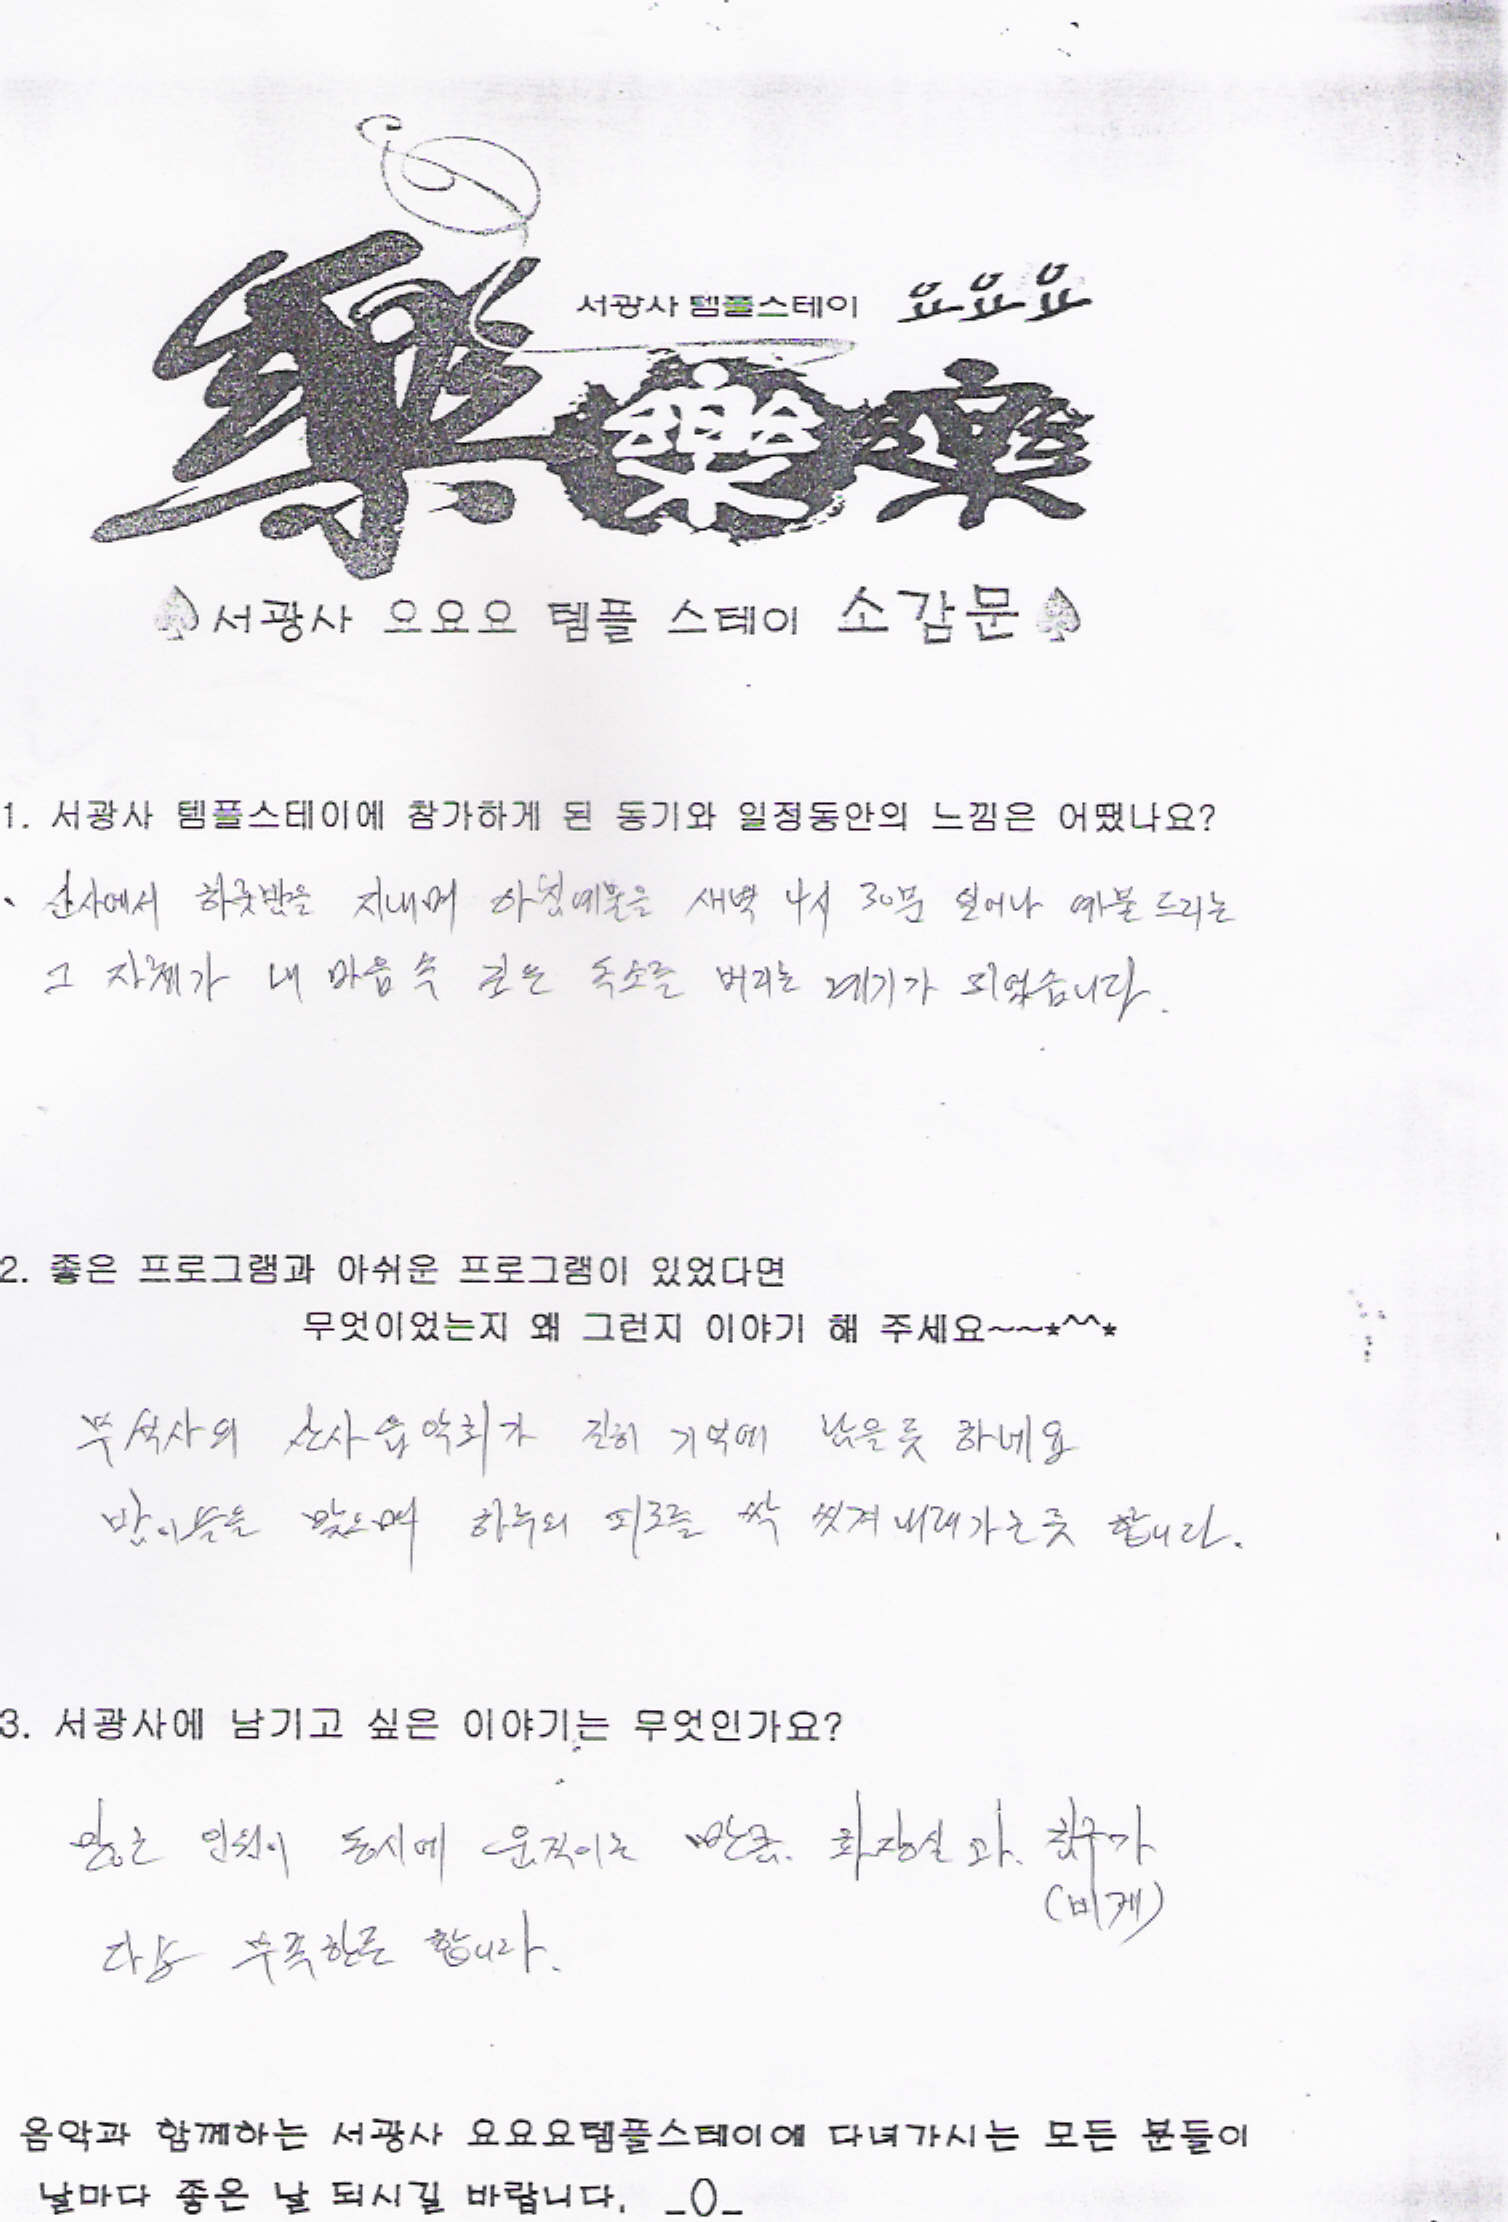 서광사 템플스테이 요요요
樂 樂 樂
서광사 요요요 템플 스테이 소감문
1. 서광사 템플스테이에 참가하게 된 동기와 일정동안의 느낌은 어땠나요?
산사에서 하룻밤을 지내며 아침예불을 새벽 4시 30분 일어나 예불 드리는
그 자체가 내 마음 속 깊은 독소를 버리는 계기가 되었습니다.
2. 좋은 프로그램과 아쉬운 프로그램이 있었다면
무엇이었는지 왜 그런지 이야기 해 주세요~~*^^*
부석사의 산사음악회가 진히 기억에 남을듯 하네요
밤이슬을 맞으며 하루의 피로를 싹 씻겨내려가는듯 합니다.
3. 서광사에 남기고 싶은 이야기는 무엇인가요?
많은 인원이 동시에 움직이는 만큼. 화장실과. 침구가
(비게)
다소 부족한듯 합니다.
음악과 함께하는 서광사 요요요템플스테이에 다녀가시는 모든 분들이
날마다 좋은 날 되시길 바랍니다. _()_